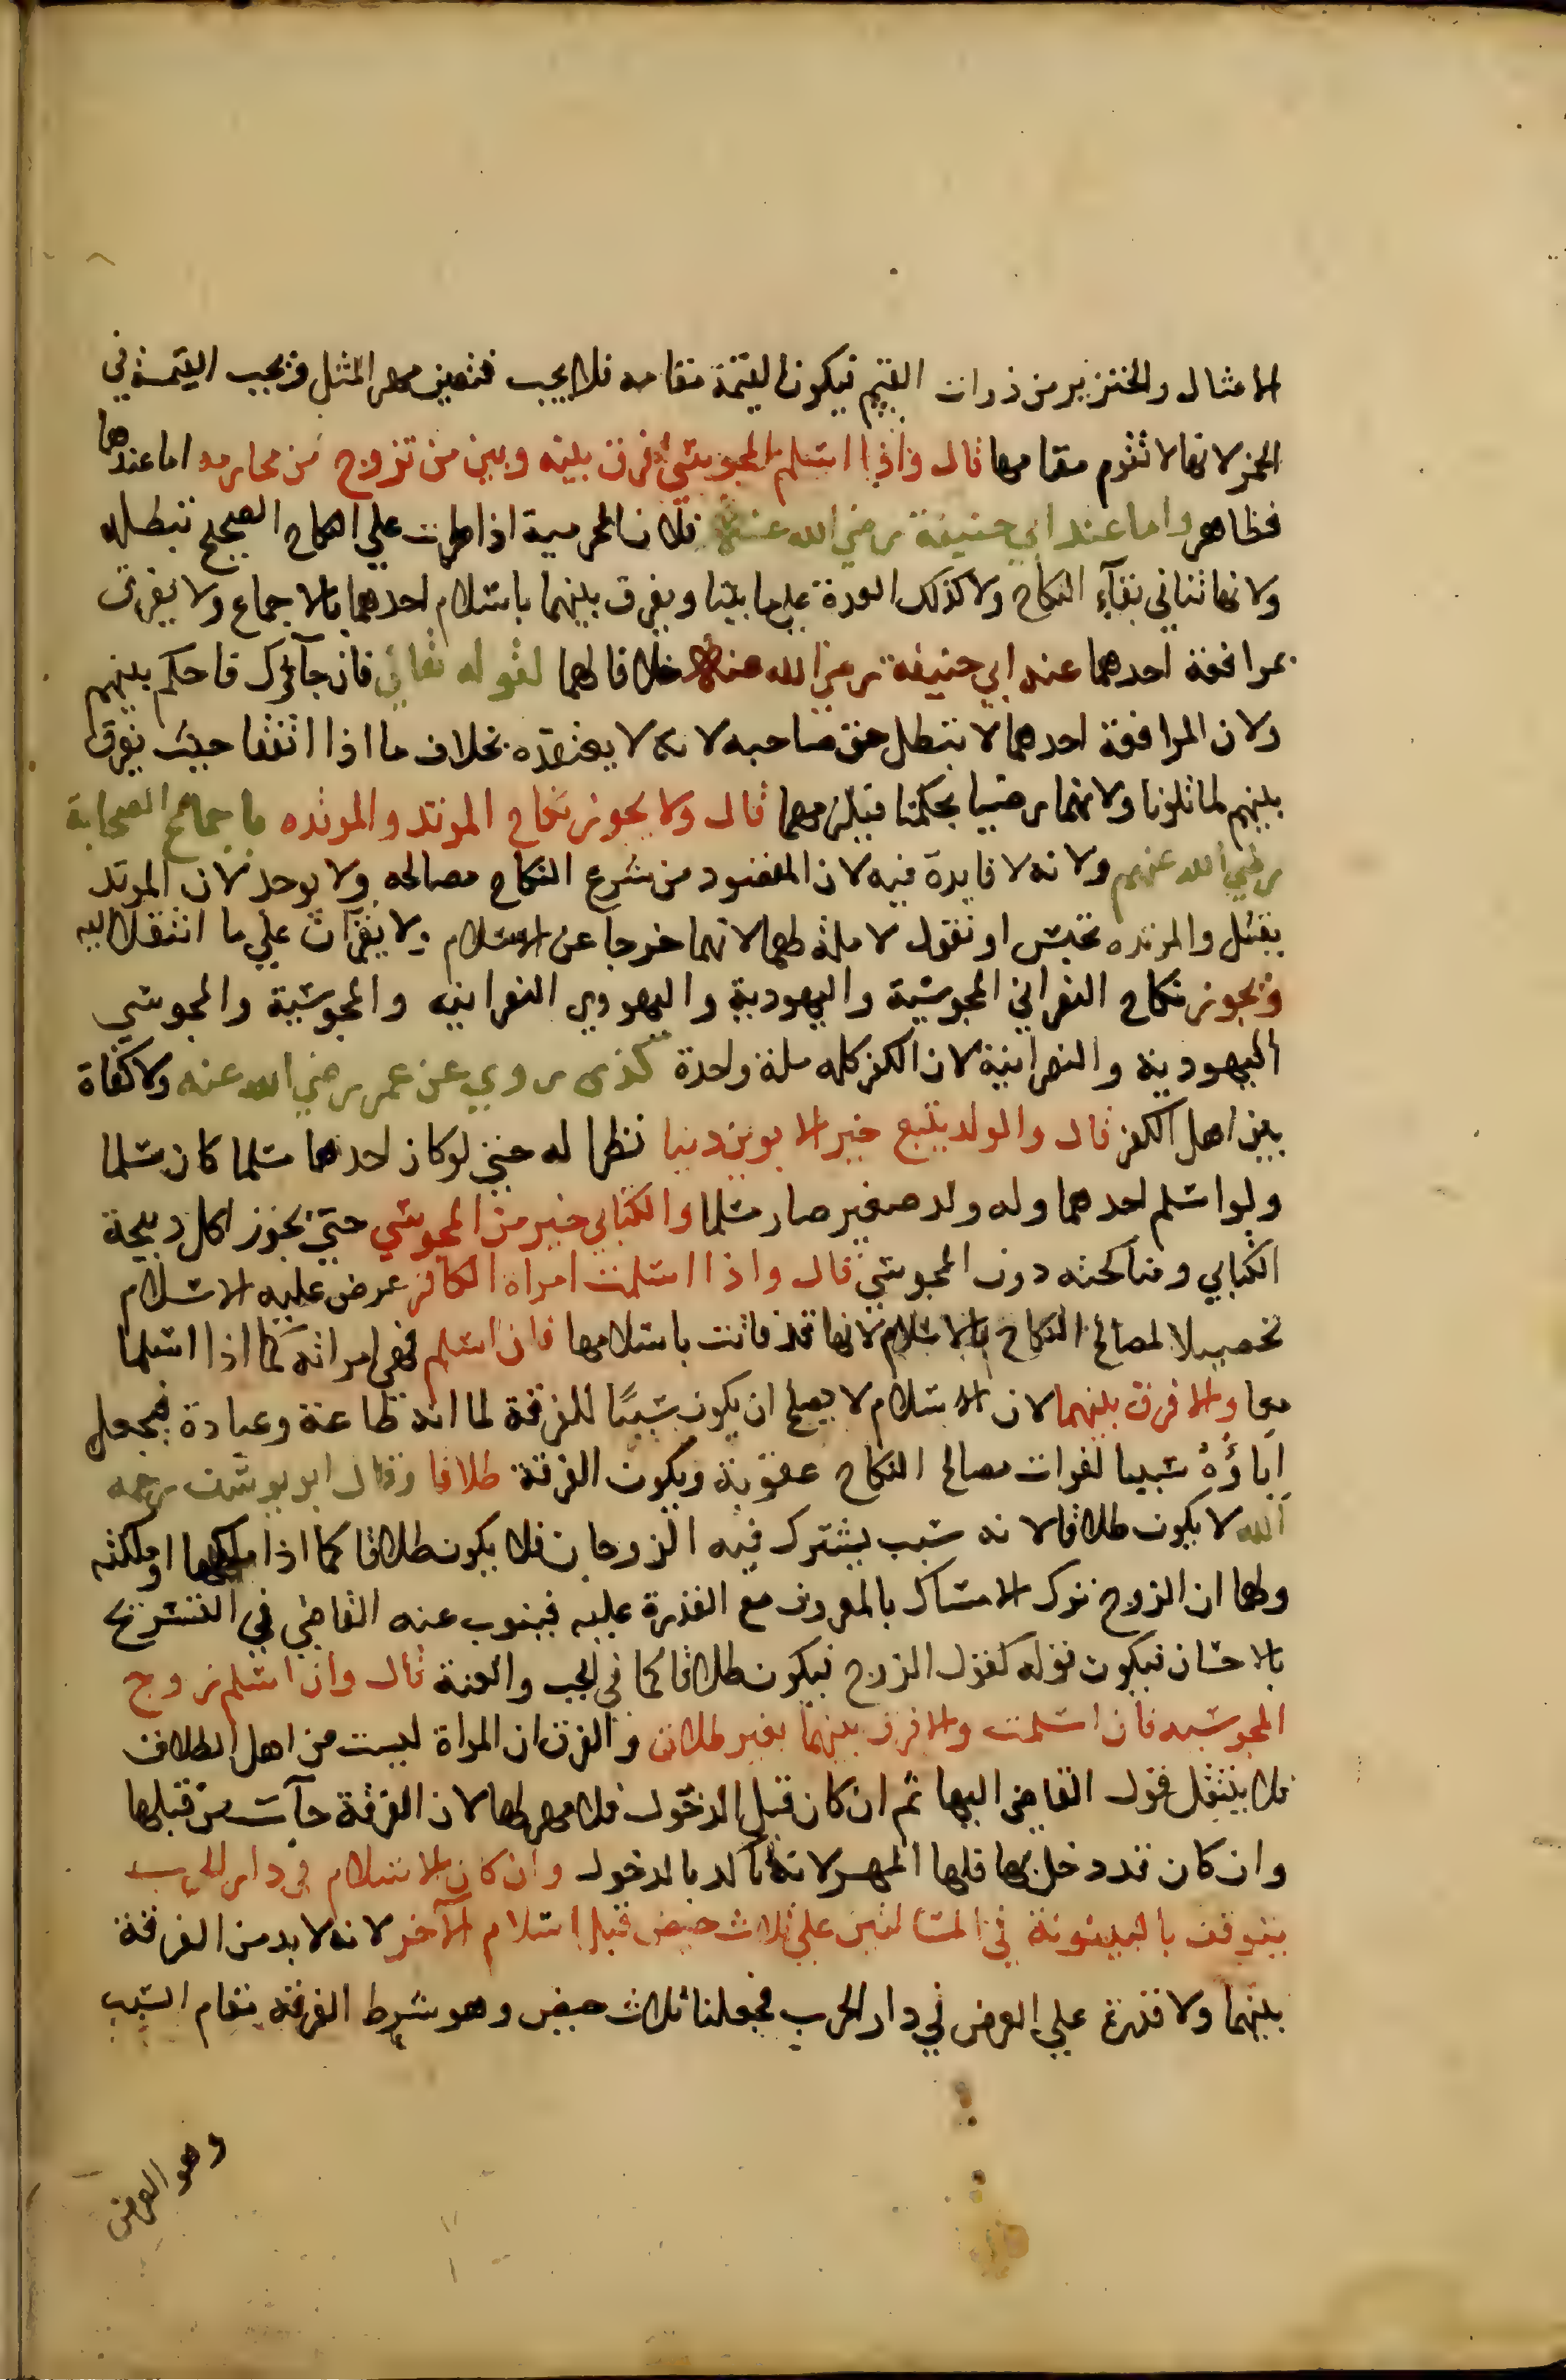 الامثال والخنزير من ذوات القيم فيكون القيمة مقامه فلا يجب فتعين مهر المثل وتجب القيمة في
الخمر لانها لا تقوم مقامها قال واذا اسلم المجوسي فرق بينه وبين من تزوج من محارمه اما عندهما
فظاهر واما عند ابي حنيفة رضي الله عنه فلان المحرمية اذا طرات علي النكاح الصحيح تبطله
ولانها تنافي بقآء النكاح ولا كذلك العدة علي ما بينا ويفرق بينهما باسلام احدهما بالاجماع ولا يفرق
بمرافعة احدهما عند ابي حنيفة رضي الله عنه خلافا لهما لقوله تعالي فان جآوك فاحكم بينهم
ولان المرافعة احدهما لا تبطل حق صاحبه لانه لا يعتقده بخلاف ما اذا اتفقا حيث يفرق
بينهم لما تلونا ولانهما رضيا بحكمنا فيلزمهما قال ولا يجوز نكاح المرتد والمرتده باجماع الصحابة
رضي الله عنهم ولانه لا فايدة فيه لان المقصود من شرع النكاح مصالحه ولا يوجد لان المرتد
يقتل والمرتده تحبس او نقول لا ملة لهما لانهما خرجا عن الاسلام ولا يقران علي ما انتقلا اليه
ويجوز نكاح النصراني المجوسية واليهودية واليهودي النصرانيه والمجوسية والمجوسي
اليهودية والنصرانية لان الكفر كله ملة واحدة كذى روي عن عمر رضي الله عنه ولا كفاة
بين اهل الكفر قال والولد يتبع خير الابوين دينا نظرا له حتي لو كان احدهما مسلما كان مسلما
ولو اسلم احدهما وله ولد صغير صار مسلما والكتابي خير من المجوسي حتي يجوز اكل ذبيحة
الكتابي ومناكحته دون المجوسي قال واذا اسلمت امراة الكافر عرض عليه الاسلام
تحصيلا لمصالح النكاح بالاسلام لانها قد فاتت باسلامها فان اسلم فهي امراته كما اذا اسلما
معا والا فرق بينهما لان الاسلام لا يصلح ان يكون سببًا للفرقة لما انه طاعة وعبادة فيجعل
اباؤهُ سببا لفوات مصالح النكاح عقوبة ويكون الفرقة طلاقا وقال ابو يوسف رحمه
الله لا يكون طلاقا لانه سبب يشترك فيه الزوجان فلا يكون طلاقا كما اذا ملكها او ملكته
ولهما ان الزوج ترك الامساك بالمعروف مع القدرة عليه فينوب عنه القاضي في التسريح
بالاحسان فيكون قوله كقول الزوج فيكون طلاقا كما في الجب والعنة قال وان اسلم زوج
المجوسيه فان اسلمت والا فرق بينهما بغير طلاق والفرق ان المراة ليست من اهل الطلاق
فلا ينتقل قول القاضي اليها ثم ان كان قبل الدخول فلا مهر لها لان الفرقة جآت من قبلها
وان كان قد دخل بها فلها المهر لانه تاكد بالدخول وان كان الاسلام في دار الحرب
يتوقف بالبينونة في المسالتين علي ثلاث حيض قبل اسلام الآخر لانه لا بد من الفرقة
بينهما ولا قدرة علي العرض في دار الحرب فجعلنا ثلاث حيض وهو شرط الفرقة مقام السبب
وهو العرض